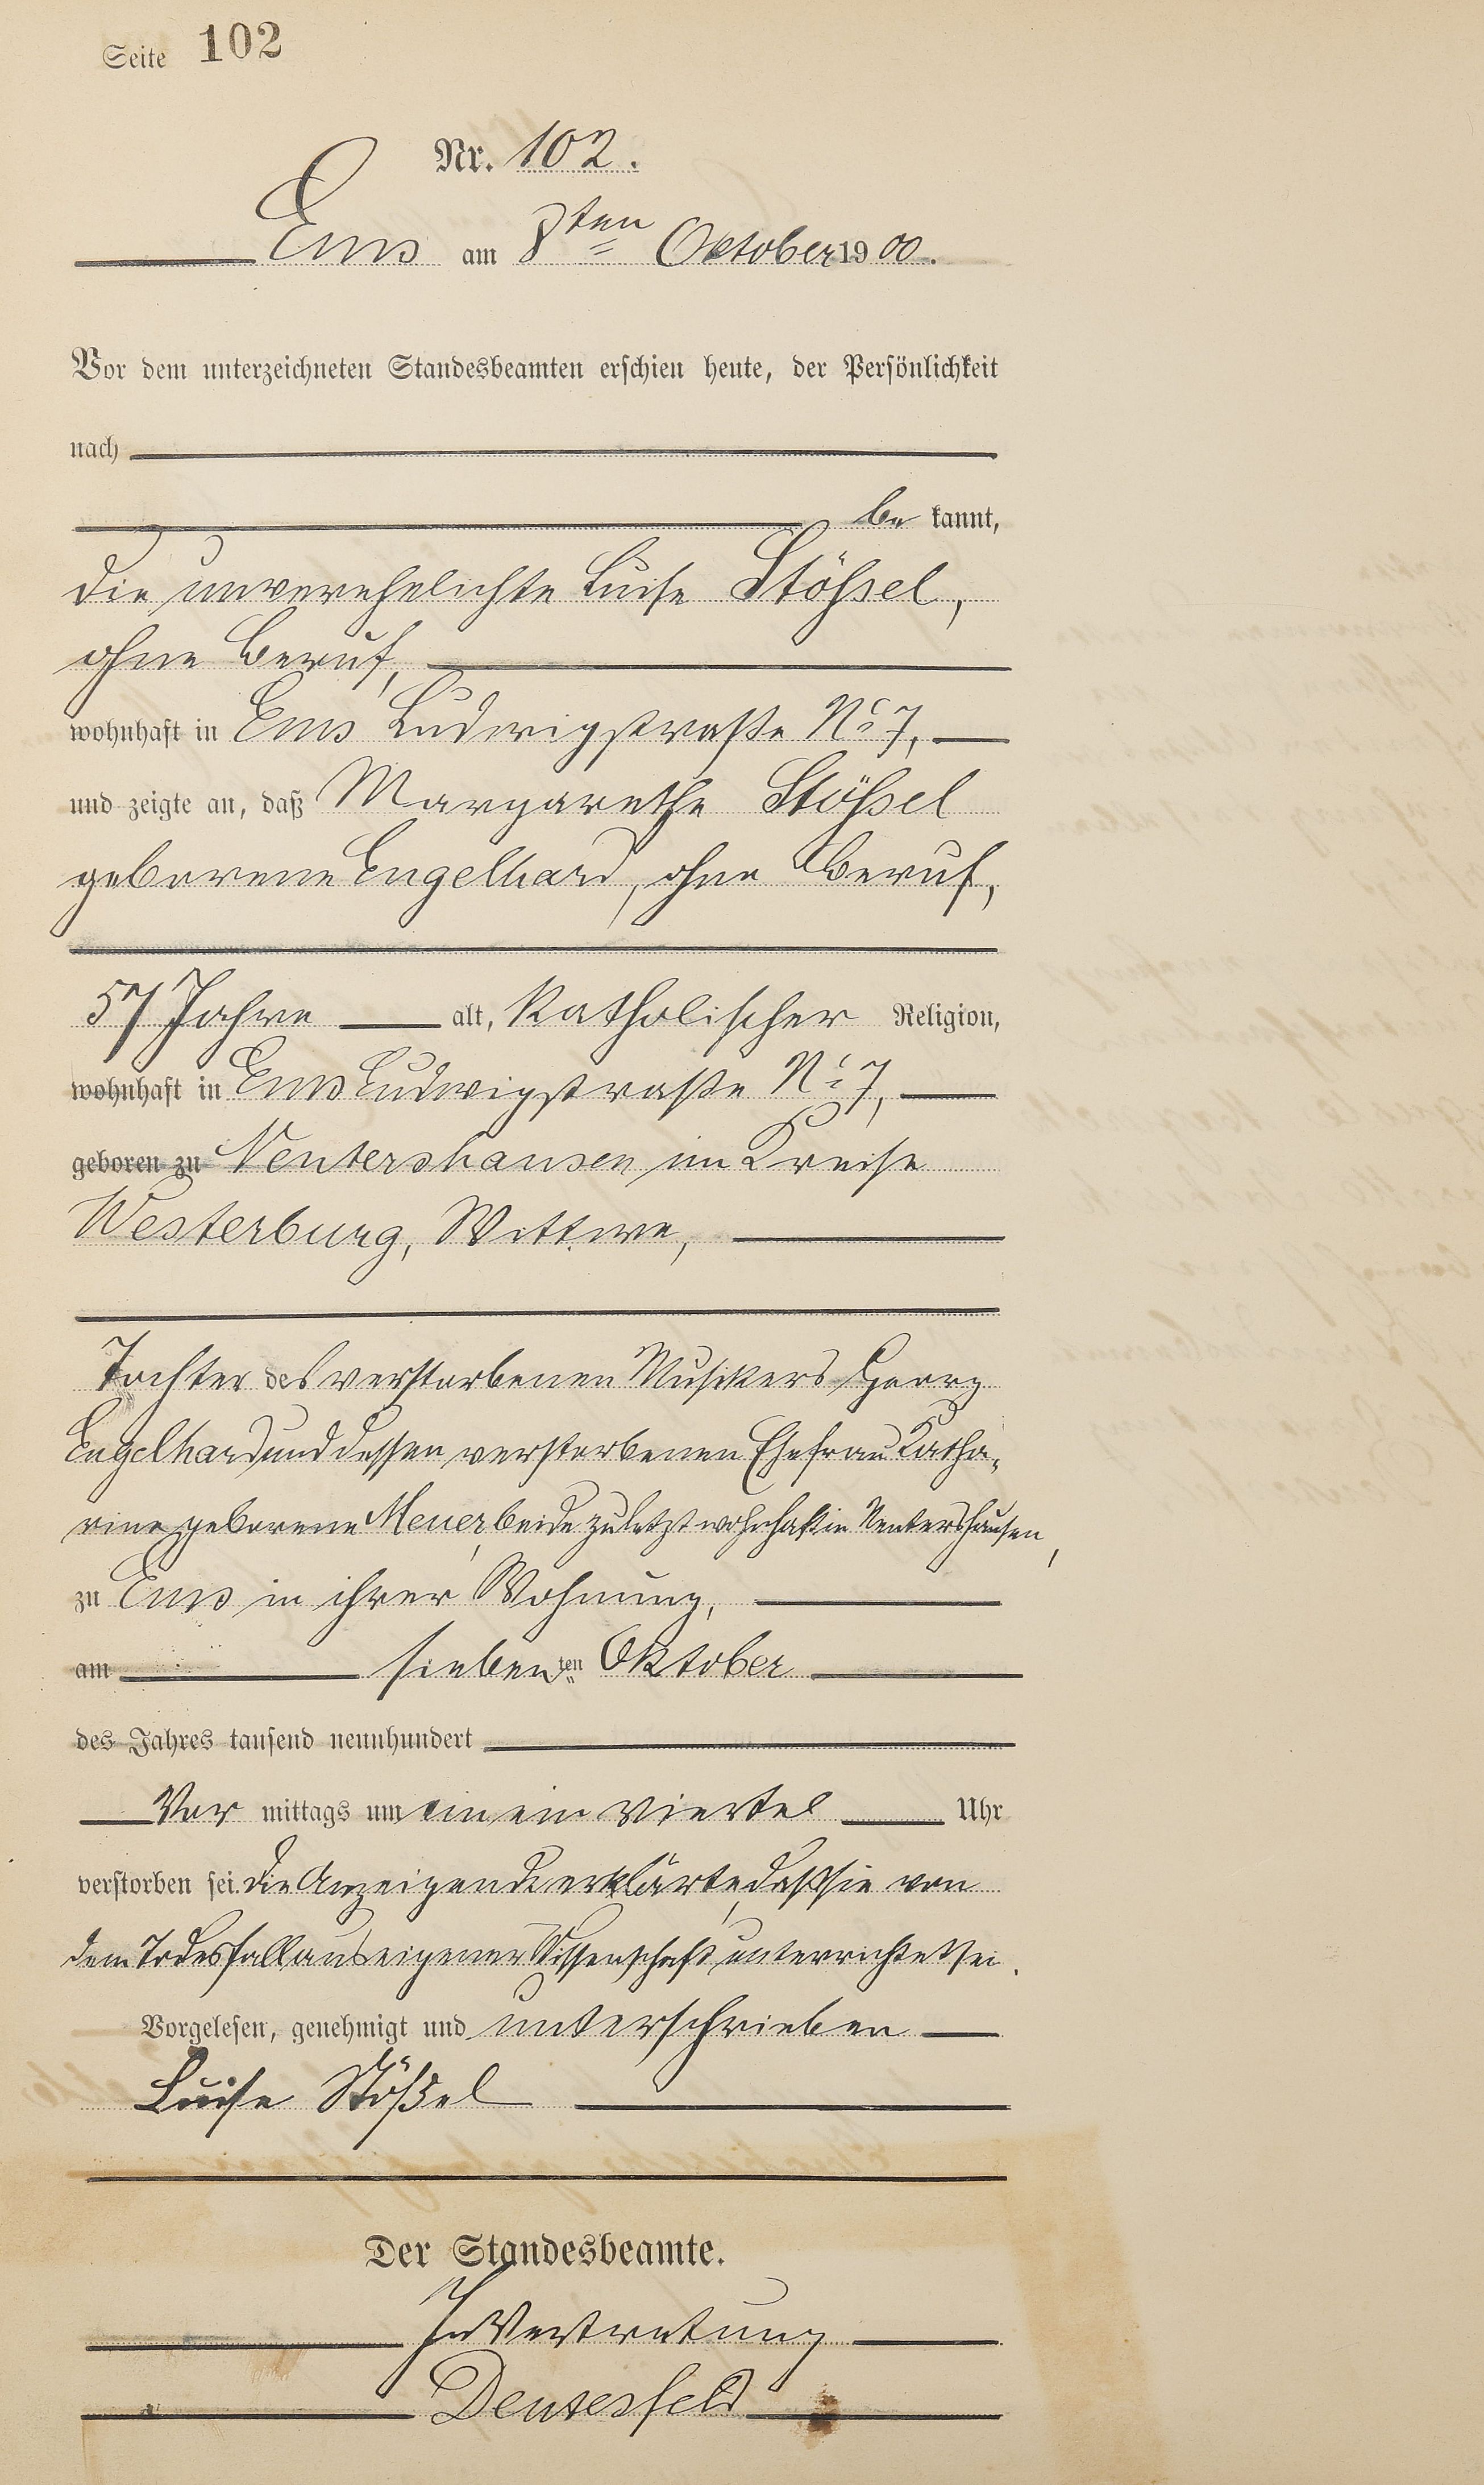 Seite 102
Nr. 102.
Ems am 8ten Oktober 1900.
Vor dem unterzeichneten Standesbeamten erschien heute, der Persönlichkeit
nach
be kannt,
die unverehelichte Luise Stößel,
ohne Beruf,
wohnhaft in Ems Ludwigstraße No 7,
und zeigte an, daß Margarethe Stößel
geborene Engelhard, ohne Beruf,
57 Jahre alt, katholischer Religion,
wohnhaft in Ems Ludwigstraße No 7,
geboren zu Nentershausen im Kreise
Westerburg, Wittwe,
Tochter des verstorbenen Musikers Georg
Engelhard und dessen verstorbenen Ehefrau Katha-
rine geborene Meuer, beide zuletzt wohnhaft in Nentershausen,
zu Ems in ihrer Wohnung,
am siebenten Oktober
des Jahres tausend neunhundert
Vor mittags um ein ein Viertel Uhr
verstorben sei. Die Anzeigende erklärte, daß sie von
dem Todesfall aus eigener Wissenschaft unterrichtet sei.
Vorgelesen, genehmigt und unterschrieben
Luise Stößel
Der Standesbeamte.
In Vertretung
Deusesfeld